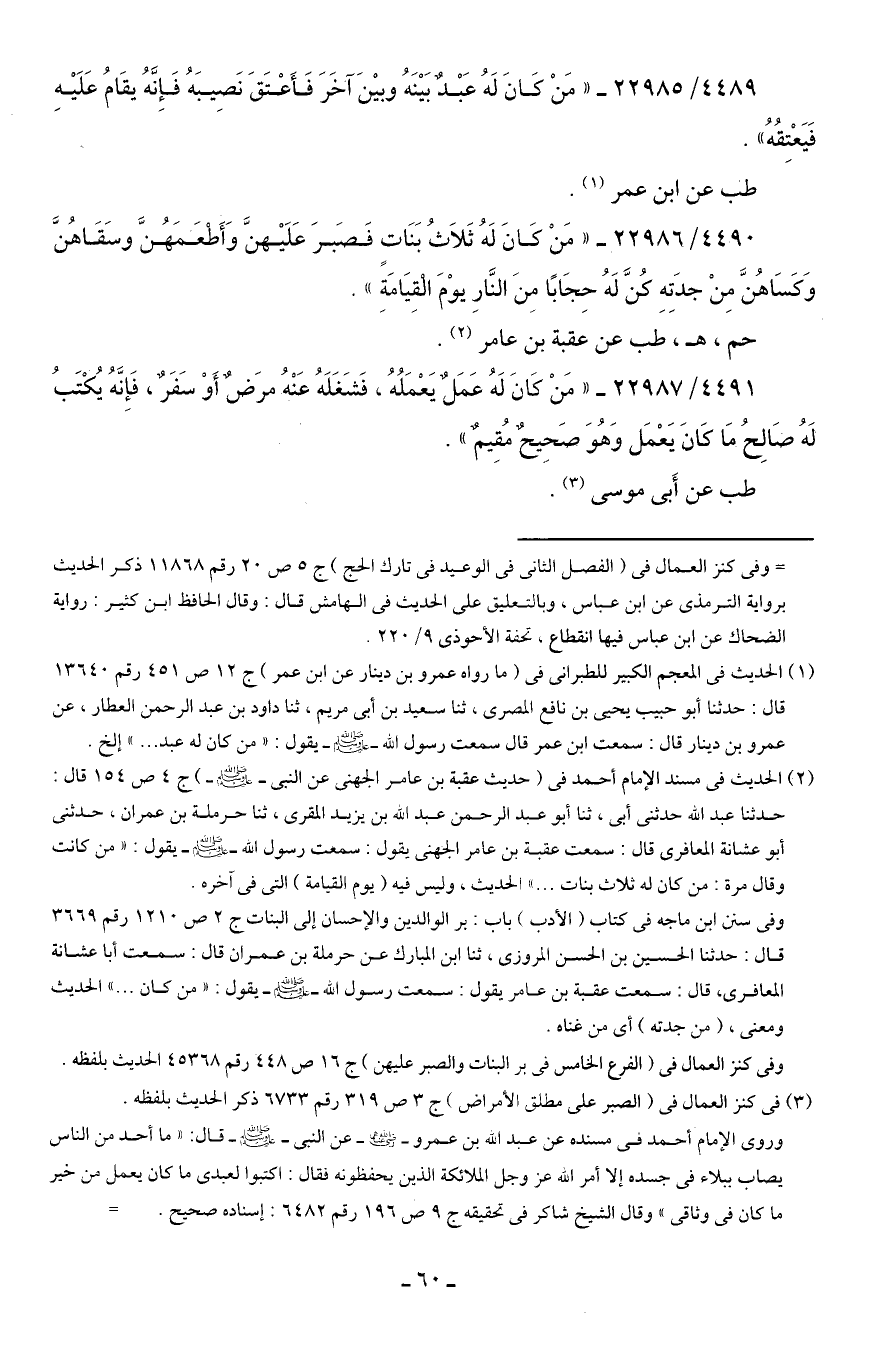 ٤٤٨٩/ ٢٢٩٨٥ ـ « مَنْ كَـانَ لَهُ عَبْـدٌ بَيْنَهُ وبيْنَ آخَرَ فَـأَعْـتَقَ نَصِيـبَهُ فَـإِنَّهُ يقَامُ عَلَيْـهِ
فَيَعْتِقُهُ» .
طب عن ابن عمر (١) .
٤٤٩٠/ ٢٢٩٨٦ ـ « مَنْ كَـانَ لَهُ ثَلَاثُ بَنَاتٍ فَـصَبَـرَ عَلَيْـهِنَّ وَأَطْعَـمَهُـنَّ وسَقَـاهُنَّ
وَكَسَاهُنَّ مِنْ جِدَتِهِ كُنَّ لَهُ حِجَابًا مِنَ النَّارِ يوْمَ الْقِيَامَةِ » .
حم ، هـ ، طب عن عقبة بن عامر (٢) .
٤٤٩١/ ٢٢٩٨٧ ـ « مَنْ كَانَ لَهُ عَمَلٌ يَعْمَلُهُ ، فَشَغَلَهُ عَنْهُ مرَضٌ أَوْ سَفَرٌ ، فَإِنَّهُ يُكْتَبُ
لَهُ صَالِحُ مَا كَانَ يَعْمَل وَهُوَ صَحِيحٌ مُقِيمٌ » .
طب عن أَبى موسى (٣) .
= وفى كنز العـمال فى ( الفصـل الثانى فى الوعيـد فى تارك الحج ) ج ٥ ص ٢٠ رقم ١١٨٦٨ ذكـر الحديث
برواية التـرمذى عن ابن عبـاس ، وبالتـعليق على الحديث فى الـهامش قـال : وقال الحافظ ابـن كثيـر : رواية
الضحاك عن ابن عباس فيها انقطاع ، تحفة الأحوذى ٩/ ٢٢٠ .
(١) الحديث فى المعجم الكبير للطبرانى فى ( ما رواه عمرو بن دينار عن ابن عمر ) ج ١٢ ص ٤٥١ رقم ١٣٦٤٠
قال : حدثنا أبو حبيب يحيى بن نافع المصرى ، ثنا سـعيد بن أبى مريم ، ثنا داود بن عبد الرحمن العطار ، عن
عمرو بن دينار قال : سمعت ابن عمر قال سمعت رسول الله ـ ﷺ ـ يقول : « من كان له عبد... » إلخ .
(٢) الحديث فى مسند الإمام أحمـد فى ( حديث عقبة بن عامـر الجهنى عن النبى ـ ﷺ ـ ) ج ٤ ص ١٥٤ قال :
حـدثنا عبد الله حدثنى أبى ، ثنا أبو عبـد الرحـمن عبـد الله بن يزيـد المقرى ، ثنا حـرملـة بن عمران ، حـدثنى
أبو عشانة المعافرى قال : سمعت عقبـة بن عامر الجهنى يقول : سمعت رسول الله ـ ﷺ ـ يقول : « من كانت
وقال مرة : من كان له ثلاث بنات ...» الحديث ، وليس فيه ( يوم القيامة ) التى فى آخره .
وفى سنن ابن ماجه فى كتاب ( الأدب ) باب : بر الوالدين والإحسان إلى البنات ج ٢ ص ١٢١٠ رقم ٣٦٦٩
قـال : حدثنا الحسـين بن الحسـن المروزى ، ثنا ابن المبارك عـن حرملة بن عـمـران قال : سـمـعت أبا عشـانة
المعافـرى، قال : سـمعت عقبـة بن عـامر يقول : سـمعت رسـول الله ـ ﷺ ـ يقول : « من كـان ...» الحديث
ومعنى ، ( من جدته ) أى من غناه .
وفى كنز العمال فى ( الفرع الخامس فى بر البنات والصبر عليهن ) ج ١٦ ص ٤٤٨ رقم ٤٥٣٦٨ الحديث بلفظه .
(٣) فى كنز العمال فى ( الصبر على مطلق الأمراض ) ج ٣ ص ٣١٩ رقم ٦٧٣٣ ذكر الحديث بلفظه .
وروى الإمام أحـمد فـى مسنده عن عبـد الله بن عمـرو ـ رضي الله عنه ـ عن النبى ـ ﷺ ـ قـال: « ما أحـد من الناس
يصاب ببلاء فى جسده إلا أمر الله عز وجل الملائكة الذين يحفظونه فقال : اكتبوا لعبدى ما كان يعمل من خير
ما كان فى وثاقى » وقال الشيخ شاكر فى تحقيقه ج ٩ ص ١٩٦ رقم ٦٤٨٢ : إسناده صحيح . =
ـ ٦٠ ـ